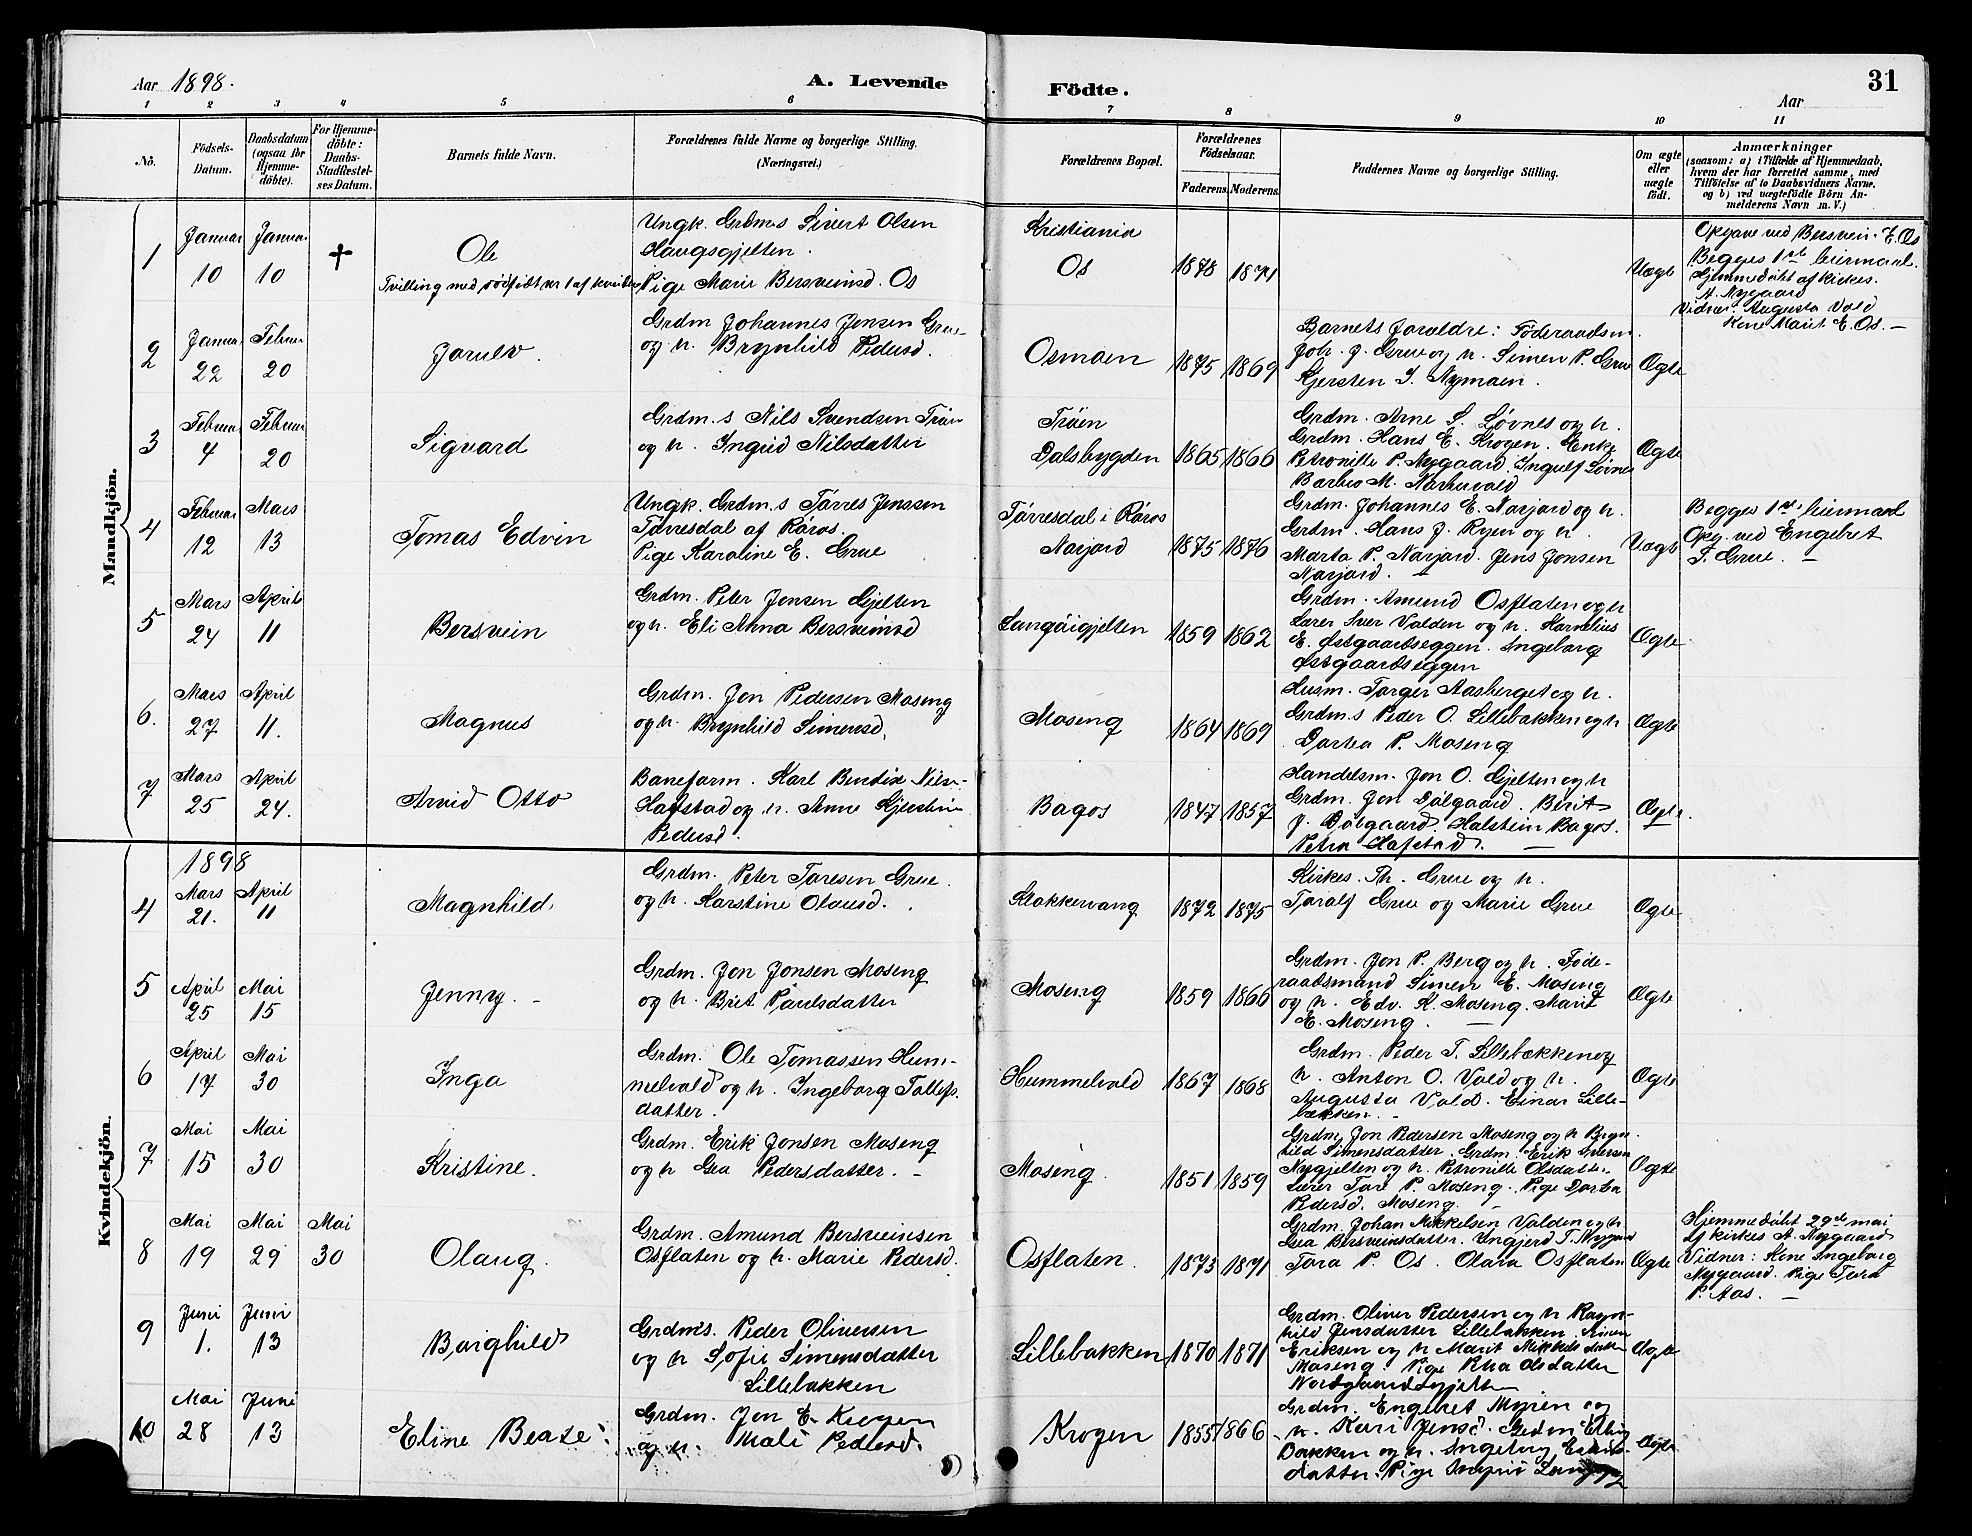 Aar 1898.
A. Levende
Födte.
Aar
31
1 2 3 4 5 6 7 8 9 10 11
No.
Födsels-Datum.
Daabsdatum (ogsaa for Hjemme-döbte).
For Hjemme-döbte: Daabs-Stadfæstel-ses Datum.
Barnets fulde Navn.
Forældrenes fulde Navne og borgerlige Stilling. (Næringsvei.)
Forældrenes Bopæl.
Forældrenes Födselsaar.
Faderens. Moderens.
Faddernes Navne og borgerlige Stilling.
Om ægte eller uægte födt.
Anmærkninger
(saasom: a) i Tilfælde af Hjemmedaab,
hvem der har forrettet samme, med
Tilföielse af to Daabsvidners Navne.
og b) ved uægtefödte Börn An-
melderens Navn m. V.)
Mandkjön.
1
Januar 10
Januar 10
†
Ole
Tvilling med dødfødt
Ungk. Grdms Sivert Olsen
Haugsgjelten.
Pige Marie Bersveinsd. Os
Kristiania
Os
1878 1871
Uægte
Opgave ved Bersvein E. Os
Begges 1ste leiermaal.
Hjemmedøbt af kirkes.
A. Nygaard
Vidner: Augusta Vold
Kone Marit E. Os. –
2
Januar 22
Februar 20
Jarulv.
Grdm Johannes Jensen Grue
og h. Brynhild Pedersd.
Osmoen
1875 1869
Barnets Forældre: Føderaadsm.
Joh. J. Grue og h. Simen P. Grue
Kjersten J. Nymoen.
Ægte
3
Februar 4
Februar 20
Sigvard
Grdm.s Nils Svendsen Trøen
og h. Ingrid Nilsdatter
Trøen
Dalsbygden
1865 1866
Grdm. Arne S. Løvnes og h.
Grdm. Hans E. Krogen. Enke
Petronille P. Nygaard. Ingulf Løvnes
Barbro M.
Ægte
4
Februar 12
Mars 13
Tomas Edvin
Ungk. Grdm.s Tørres Jenssen
Tørresdal af Røros.
Pige Karoline E. Grue
Tørresdal i Røros
Narjord
1875 1876
Grdm. Johannes E. Narjord og h.
Grdm. Hans J. Ryen og h.
Marta P. Narjord. Jens Jonsen
Narjord. –
Uægte
Begges 1ste leiermaal
Opg. ved Engebret
T. Grue. –
5
Mars 24
April 11
Bersvein
Grdm. Peter Jonsen Gjelten
og h. Eli Anna Bersveinsd
Langøigjelten
1859 1862
Grdm. Amund Osflaten og h
Lærer Iver Volden og h. Kornelius
E. Østgaardseggen. Ingeborg
Østgaardseggen
Ægte
6.
Mars 27
April 11.
Magnus
Grdm. Jon Pedersen Moseng
og h. Brynhild Simensd.
Moseng
1864 1869
Husm. Torger Aasberget og h.
Grdm.s Peder O. Lillebakken og h
Dortea P. Moseng
Ægte
7
Mars 25
April 24.
Arvid Otto
Baneform. Karl Bendix Nils-
Hafstad og h. Anne Gjertine
Pedersd.
Bagos
1847 1857
Handelsm. Jon O. Gjelten og h
Grdm. Jon Dølgaard. Berit
J. Dølgaard. Halstein Bagos.
Petra Hafstad. –
Ægte
Kvindekjön.
1898
4
Mars 21.
April 11
Magnhild
Grdm. Peter Toresen Grue.
og h. Karstine Olausd.
Klokkervang
1872 1875
Kirkes. Th. Grue og h.
Toralf Grue og Marie Grue
Ægte
5
April 25
Mai 15
Jenny. –
Grdm. Jon Jonsen Moseng
og h. Brit Paulsdatter
Moseng
1859 1866
Grdm. Jon P. Berg og h. Føde-
raadsmand Simen E. Moseng
og h. Edv. K. Moseng. Marit
E. Moseng. –
Ægte
6
April 17
Mai 30
Inga
Grdm. Ole Tomassen Hum-
melvold og h. Ingeborg Tollefs.
datter.
Hummelvold
1867 1868
Grdm. Peder T. Lillebakken og
h. Anton O. Vold og h.
Augusta Vold. Einar Lille-
bakken. –
Ægte
7
Mai 15
Mai 30
Kristine.
Grdm. Erik Jonsen Moseng
og h Gea Pedersdatter. –
Moseng.
1851 1859
Grdm. Jon Pedersen Moseng og h Bryn-
hild Simensdatter. Grdm. Erik Iversen
Nygjelten og h. Petronille Olsdatter
Lærer Tore P. Moseng. Pige Dortea
Pedersd. Moseng. –
Ægte
8
Mai 19
Mai 29
Mai 30
Olaug.
Grdm. Amund Bersveinsen
Osflaten og h. Marie Pedersd.
Osflaten.
1873 1871
Grdm. Johan Mikkelsen Volden og h
Gea Bersveinsdatter. Ingjerd T. Nygaard
Tora P. Os. Olava Osflaten
Ægte
Hjemmedøbt 29de mai
af kirkes A. Nygaard
Vidner: Kone Ingeborg
Nygaard. Pige Tora
P. Aas. –
9
Juni 1.
Juni 13
Borghild
Grdm.s. Peder Oliversen
og h Sofie Simensdatter
Lillebakken
Lillebakken
1870 1871
Grdm. Oliver Pedersen og h Ragn-
hild Jensdatter Lillebakken. Simen
Eriksen og h Marit Mikkelsdatter
Moseng. Pige Olsdatter
Ægte
10
Mai 28
Juni 13
Eline Beate.
Grdm. Jon E. Krogen
og h. Mali Pedersd.
Krogen
1855 1866
Grdm. Engebret Myren og
h. Kari Jensd. Grdm
Bakken og h. Ingeborg
datter. Pige
Ægte